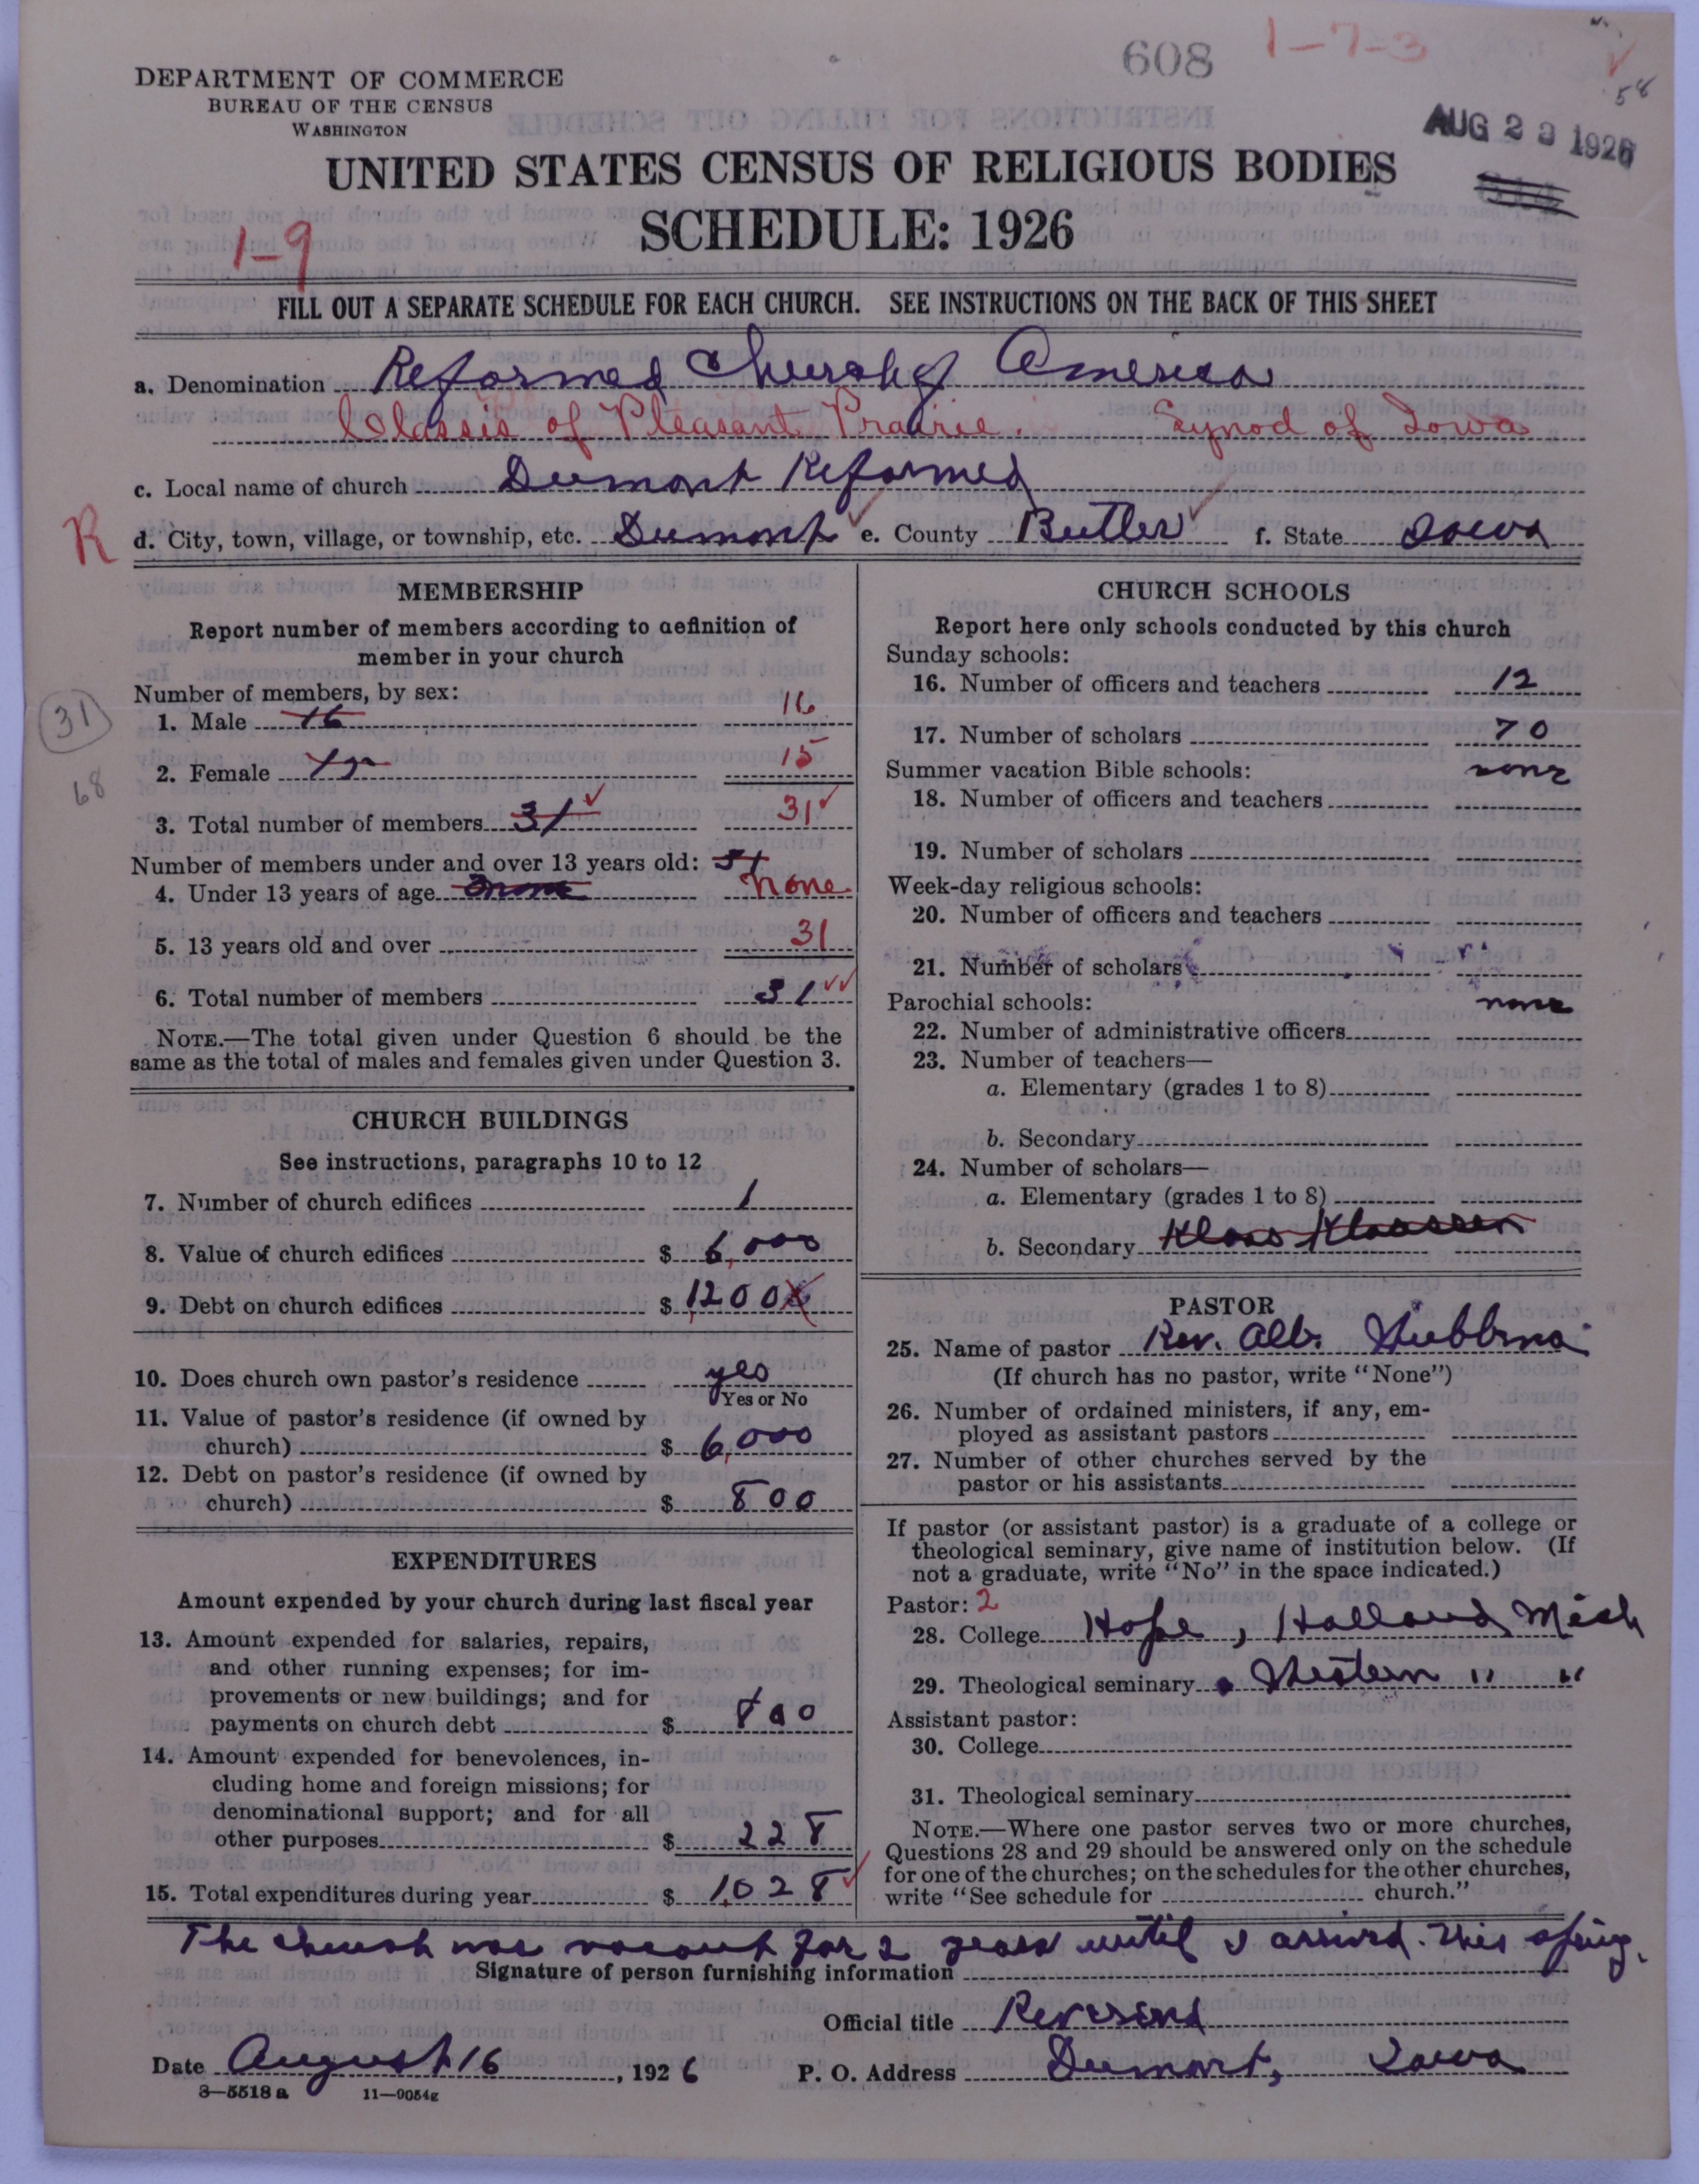 608 1-7-3
58
DEPARTMENT OF COMMERCE
BUREAU OF THE CENSUS
WASHINGTON
AUG 23 1926
UNITED STATES CENSUS OF RELIGIOUS BODIES
SCHEDULE: 1926
1-9
FILL OUT A SEPARATE SCHEDULE FOR EACH CHURCH. SEE INSTRUCTIONS ON THE BACK OF THIS SHEET
a. Denomination Reformed Church of America
Classis of Pleasant Prairie. Synod of Iowa
c. Local name of church Dumont Reformed
R
d. City, town, village, or township, etc. Dumont e. County Butler f. State Iowa
MEMBERSHIP
Report number of members according to definition of
member in your church
Number of members, by sex:
31
1. Male 16 16
2. Female 15 15
68
3. Total number of members 31 31
Number of members under and over 13 years old: 31
4. Under 13 years of age none none
5. 13 years old and over 31
6. Total number of members 31
NOTE.—The total given under Question 6 should be the
same as the total of males and females given under Question 3.
CHURCH BUILDINGS
See instructions, paragraphs 10 to 12
7. Number of church edifices 1
8. Value of church edifices $ 6,000
9. Debt on church edifices $ 1200
10. Does church own pastor's residence yes
Yes or No
11. Value of pastor's residence (if owned by
church) $ 6,000
12. Debt on pastor's residence (if owned by
church) $ 800
EXPENDITURES
Amount expended by your church during last fiscal year
13. Amount expended for salaries, repairs,
and other running expenses; for im-
provements or new buildings; and for
payments on church debt $ 800
14. Amount expended for benevolences, in-
cluding home and foreign missions; for
denominational support; and for all
other purposes $ 228
15. Total expenditures during year $ 1,028
CHURCH SCHOOLS
Report here only schools conducted by this church
Sunday schools:
16. Number of officers and teachers 12
17. Number of scholars 70
Summer vacation Bible schools: none
18. Number of officers and teachers
19. Number of scholars
Week-day religious schools:
20. Number of officers and teachers
21. Number of scholars
Parochial schools: none
22. Number of administrative officers
23. Number of teachers—
a. Elementary (grades 1 to 8)
b. Secondary
24. Number of scholars—
a. Elementary (grades 1 to 8)
b. Secondary Klaas Klaassen
PASTOR
25. Name of pastor Rev. Alb.
(If church has no pastor, write "None")
26. Number of ordained ministers, if any, em-
ployed as assistant pastors
27. Number of other churches served by the
pastor or his assistants
If pastor (or assistant pastor) is a graduate of a college or
theological seminary, give name of institution below. (If
not a graduate, write "No" in the space indicated.)
Pastor: 2
28. College Hope, Holland Mich
29. Theological seminary Western " "
Assistant pastor:
30. College
31. Theological seminary
NOTE.—Where one pastor serves two or more churches,
Questions 28 and 29 should be answered only on the schedule
for one of the churches; on the schedules for the other churches,
write "See schedule for church."
The church was vacant for 2 years until I arrived. This spring.
Signature of person furnishing information
Official title Reverend
Date August 16, 1926 P. O. Address Dumont, Iowa
8—5518 a 11—9054g